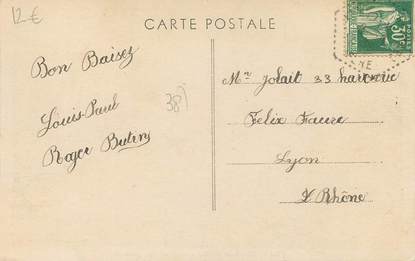 12 €
CARTE POSTALE
POSTES
30c
NE
Bon Baisez
Louis-Paul
Roger Butin
38)
Mr Jolait 33
Felix Faure
Lyon
Rhône